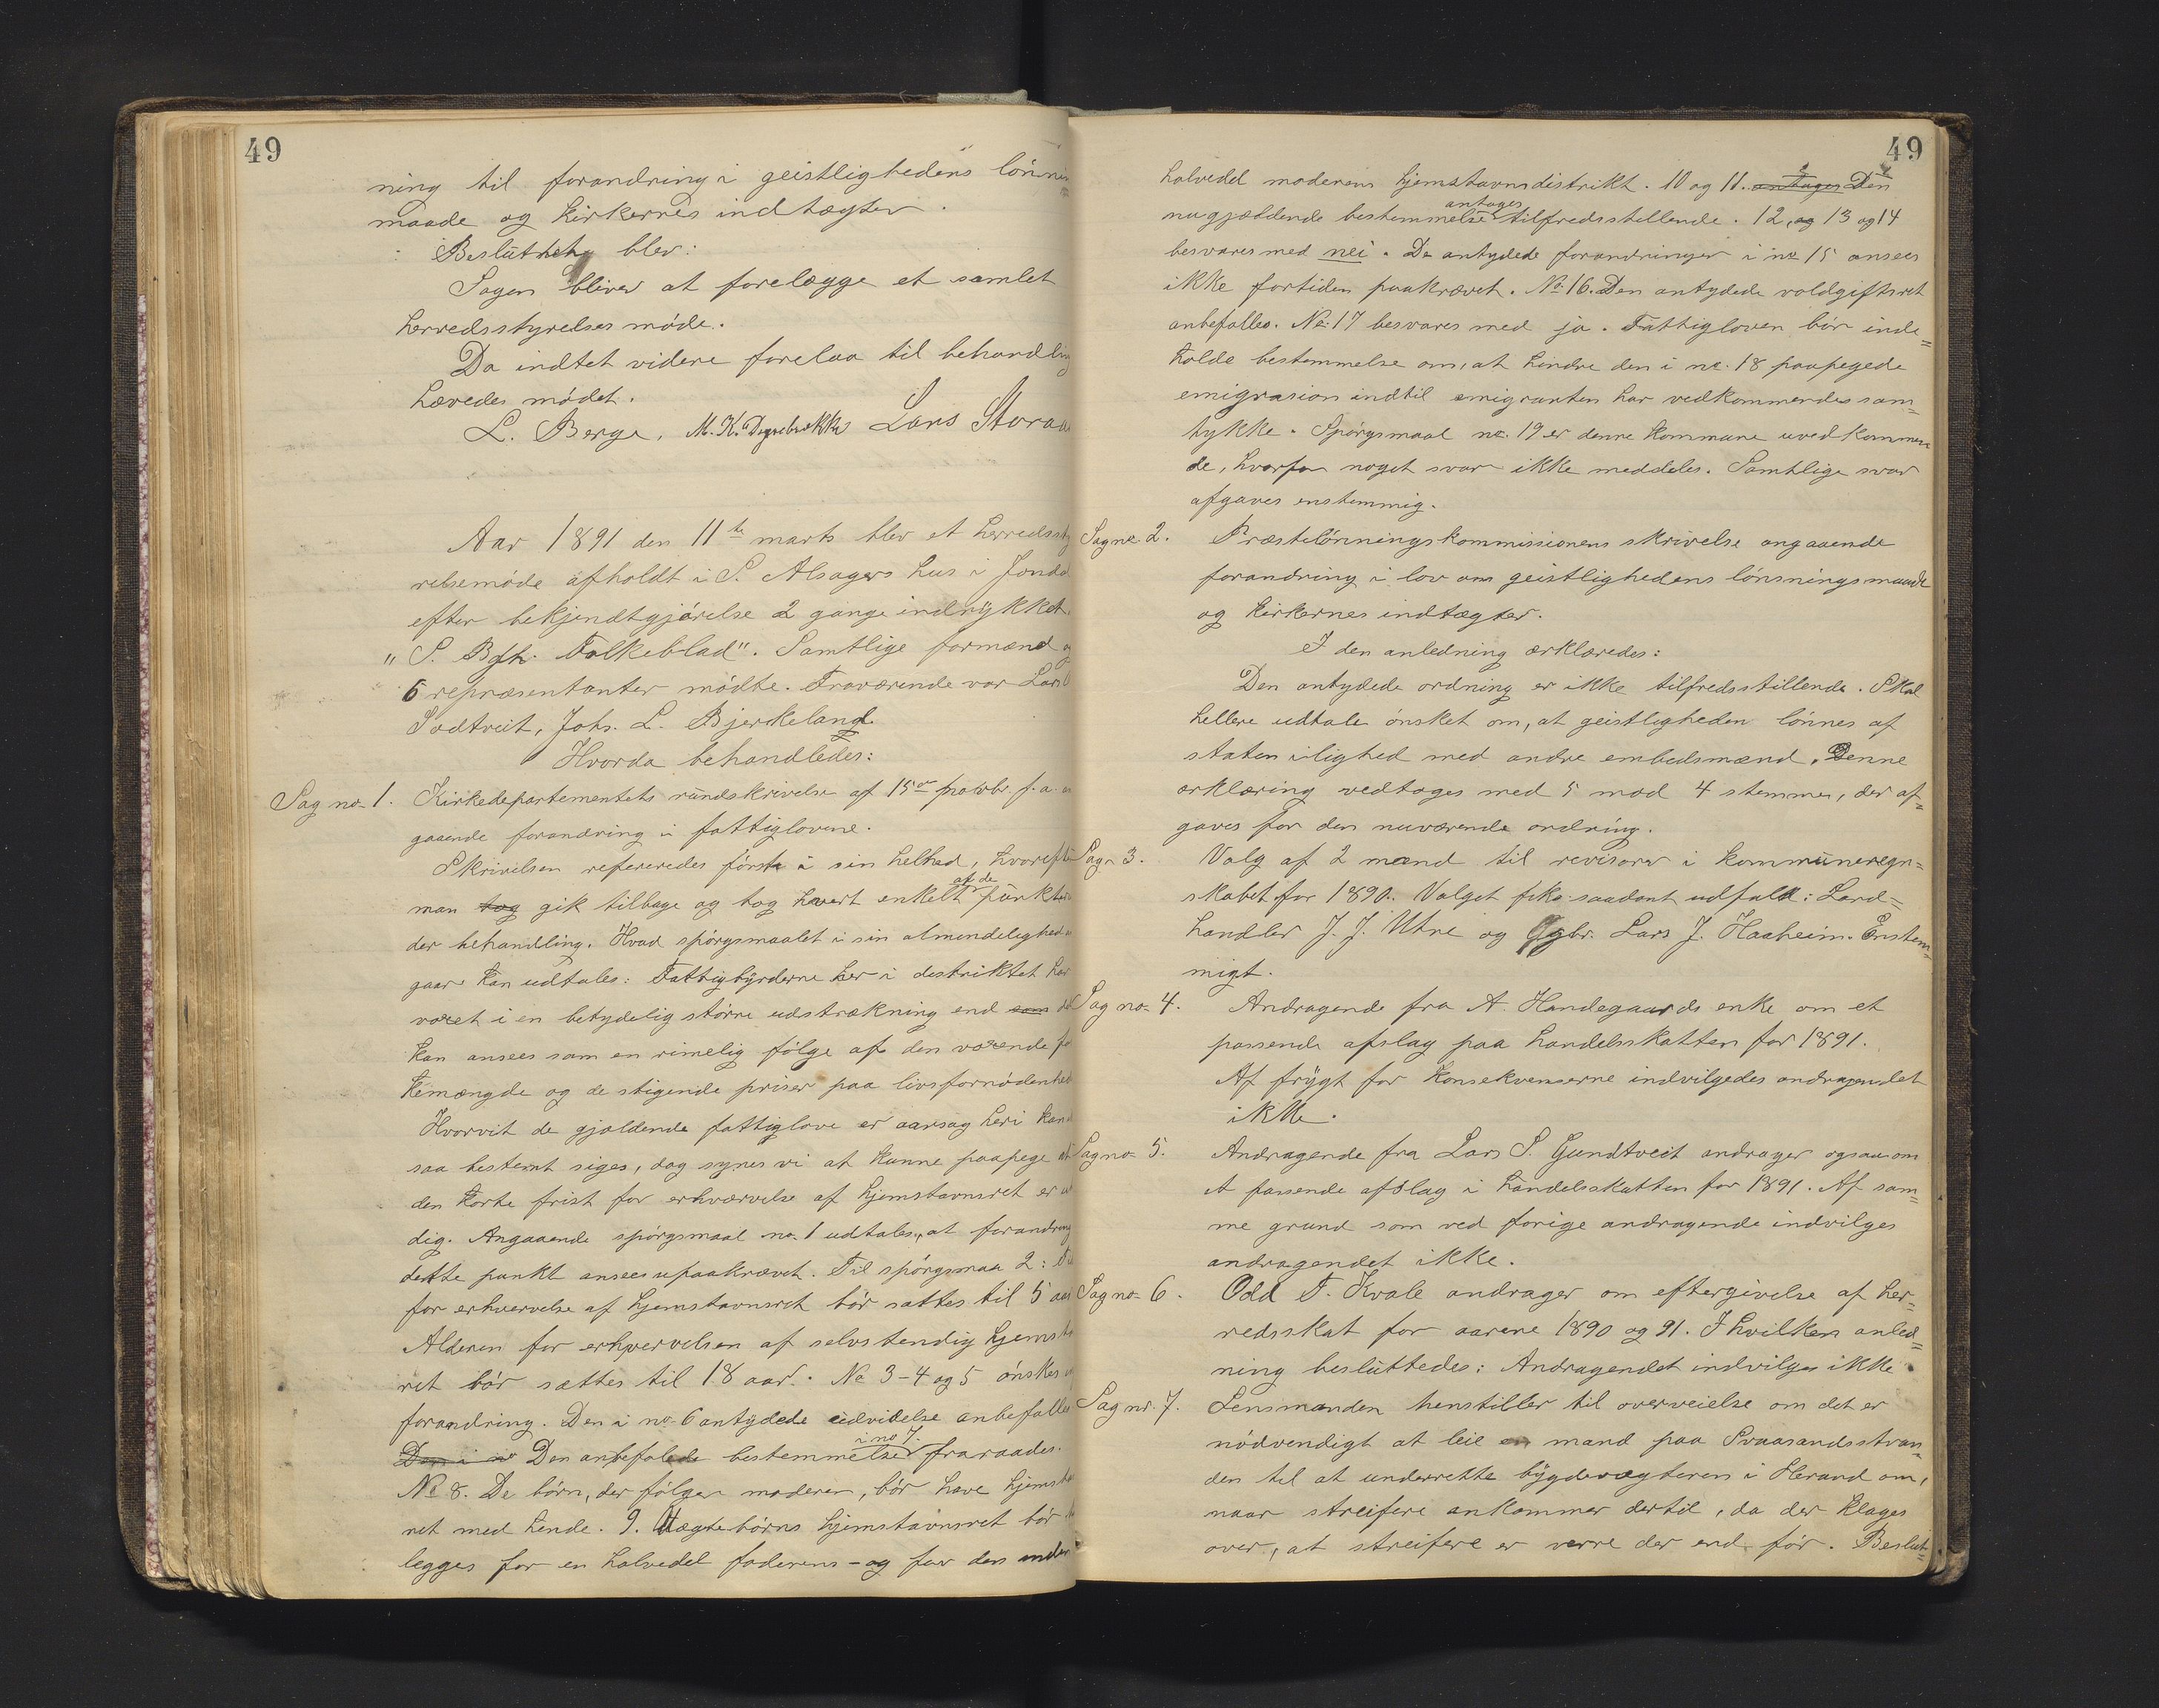 49
ning til forandring i geistlighedens lönnings
maade og kirkernes indtægter.
Beslutning blev:
Sagen bliver at forelægge et samlet
herredsstyrelses möde.
Da indtet videre forelaa til behandling
hævedes mödet.
L. Berge, M. K. Lars Storaa
Aar 1891 den 11te marts blev et herredssty
relsemöde afholdt i S. Alsagers hus i Jondal
efter bekjendtgjörelse 2 gange indrykket i
"S. Bgh. Folkeblad". Samtlige formænd og
6 repræsentanter mödte. Fraværende var Lars
Sodtveit, Johs. L. Bjerkeland.
Hvorda behandledes:
Sag no 1. Kirkedepartementets rundskrivelse af 15de novbr. f. a. an
gaaende forandring i fattiglovene.
Skrivelsen refereredes förste i sin helhed, hvorefter
man tog gik tilbage og tog hvert enkelt af de punkter
der behandling. Hvad spörgsmaalet i sin almindelighed an
gaar kan udtales: Fattigbyrderne her i destriktet har
voxet i en betydelig större udstrækning end som det
kan ansees som en rimelig fölge af den voxende fol
kemængde og de stigende priser paa livsfornödenhed
Hvorvit de gjældende fattiglove er aarsag heri kan ei
saa bestemt siges, dog synes vi at kunne paapege at
den korte frist for erhværvelse af hjemstavnsret er u
dig. Angaaende spörgsmaal no. 1 udtales, at forandring
dette punkt ansees upaakrævet. Til spörgsmaa 2:
for erhvervelse af hjemstavnsret bör sættes til 5 aar
Alderen for erhvervelsen af selvstendig hjemsta
ret bör sættes til 18 aar. No 3-4 og 5 önskes
forandring. Den i no 6 antydede udvidelse anbefalles
Den i no Den anbefalede bestemmelse i no 7. fraraades.
No 8. De börn, der fölger moderen, bör have hjemstav
ret med hende. 9. Uægtebörns hjemstavnsret bör
legges for en halvedel faderens - og for den anden
49
halvedel moderens hjemstavnsdistrikt. 10 og 11. antages Den
nugjældende bestemmelse antages tilfredsstillende. 12, og 13 og 14
besvares med nei. De antydede forandringer i no 15 ansees
ikke fortiden paakrævet. No 16. Den antydede voldgiftsret
anbefalles. No: 17 besvares med ja. Fattigloven bör inde=
holde bestemmelse om, at hindre den i no. 18 paapegede
emigrasion indtil emigranten har vedkommendes sam=
tykke. Spörgsmaal no. 19 er denne kommune uvedkommen=
de, hvorfor noget svar ikke meddeles. Samtlige svar
afgaves enstemmig.
Sag no 2. Præstelönningskommissionens skrivelse angaaende
forandring i lov om geistlighedens lönsningsmaade
og kirkernes indtægter.
I den anledning ærklæredes:
Den antydede ordning er ikke tilfredsstillende. Skal
hellere udtale önsket om, at geistligheden lönnes af
staten ilighed med andre embedsmænd. Denne
ærklæring vedtoges med 5 mod 4 stemmer, der af=
gaves for den nuværende ordning.
Sag n 3. Valg af 2 mænd til revisorer i kommuneregn=
skabet for 1890. Valget fik saadant udfald: Land=
handler J. J. Utne og Ggbr. Lars J. Haaheim. Enstem=
migt.
Sag no 4. Andragende fra A. Handegaards enke om et
passende afslag paa handelsskatten for 1891.
Af frygt for konsekvenserne indvilgedes andragendet
ikke.
Sag no 5. Andragende fra Lars S. Gundtveit andrager ogsaa om
et passende afslag i handelsskatten for 1891. Af sam=
me grund som ved forige andragende indvilges
andragendet ikke.
Sag no 6. Odd T. Kvale andrager om eftergivelse af her=
redsskat for aarene 1890 og 91. I hvilken anled=
ning besluttedes: Andragendet indvilges ikke.
Sag nr. 7. Lensmanden henstiller til overveielse om det er
nödvendigt at leie en mand paa Svaasandsstran=
den til at underrette bygdevægteren i Herand om,
naar streifere ankommer dertil, da der klages
over, at streifere er verre der end för. Beslut=